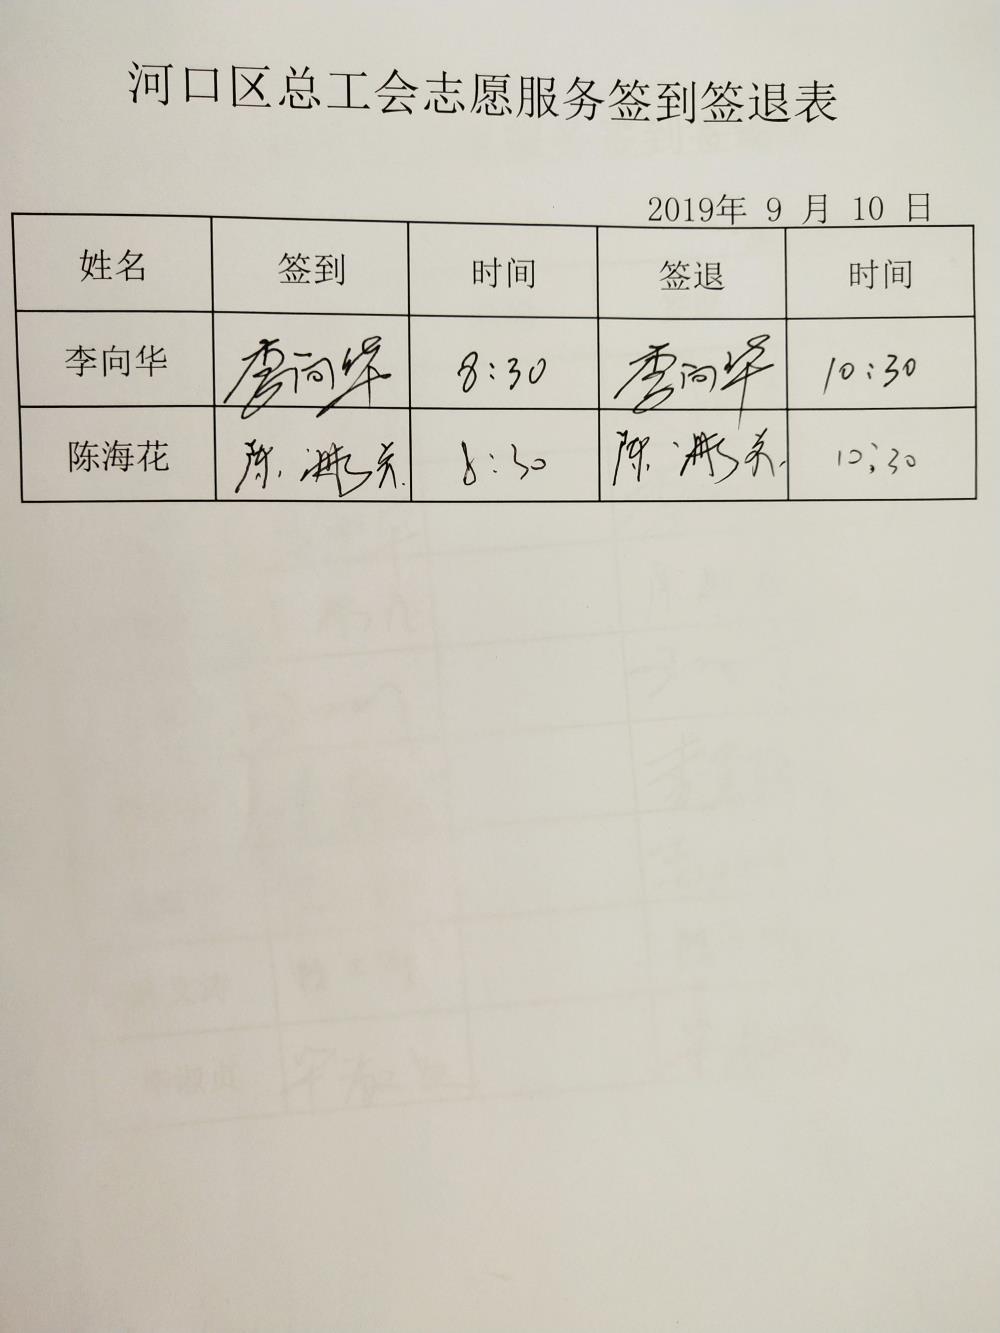 河口区总工会志愿服务签到签退表
2019年 9 月 10 日
姓名 签到 时间 签退 时间
李向华 李向华 8:30 李向华 10:30
陈海花 陈海花 8:30 陈海花 10:30